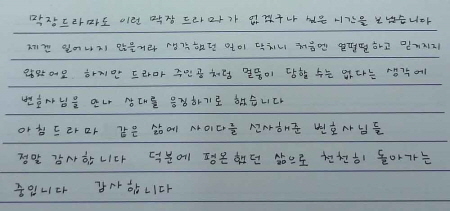 막장드라마도 이런 막장 드라마가 없겠구나 싶은 시간을 보냈습니다
제겐 일어나지 않을거라 생각했던 일이 닥치니 처음엔 얼떨떨하고 믿겨지지
않았어요. 하지만 드라마 주인공처럼 멀뚱이 당할 수는 없다는 생각에
변호사님을 만나 상대를 응징하기로 했습니다
아침드라마 같은 삶에 사이다를 선사해준 변호사님들
정말 감사합니다 덕분에 평온했던 삶으로 천천히 돌아가는
중입니다 감사합니다